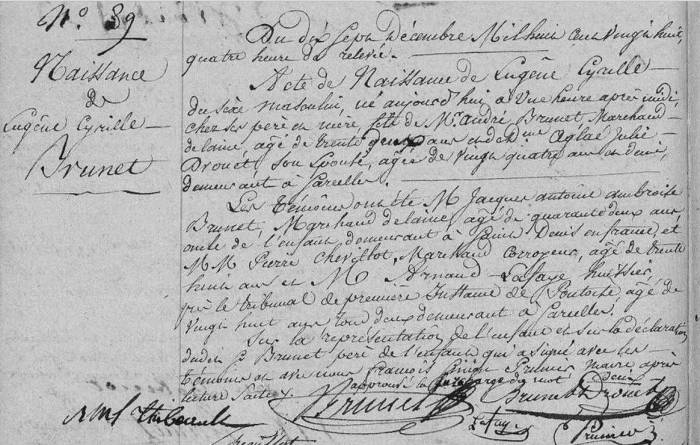 N.º 39
Naissance
de
Eugêne Cyrille
Brunet
Du dix Sept Décembre Mil huit cent vingt huit,
quatre heure de relevé.
Acte de Naissance de Eugêne Cyrille
du sexe masculin, né aujourd'hui à Une heure après midi,
chez ses père et mère, fils de Mr. André Brunet Marchand
de laine, agé de trente deux ans et de Aglaé Julie
Drouet son Epouse, agée de vingt quatre ans et demi,
demeurant à Sarcelles.
Les témoins ont été M. Jacques antoine ambroise
Brunet, Marchand de laine, agé de quarante deux ans,
oncle de l'enfant, demeurant à Saint Denis en france, et
M M. Pierre Chevillot, Marchand Corroyeur, agé de trente
huit ans et M. Arnaud Lafaye huissier,
près le tribunal de première Instance de Pontoise agé de
Vingt huit ans tous deux demeurant à Sarcelles.
Sur la représentation de l'enfant et sur la déclaration
dudit S. Brunet père de l'enfant qui a signé avec les
témoins et avec nous françois Prunier maire après
lecture faite
approuvé la surcharge du mot deux
Brunet
Lafaye
Prunier